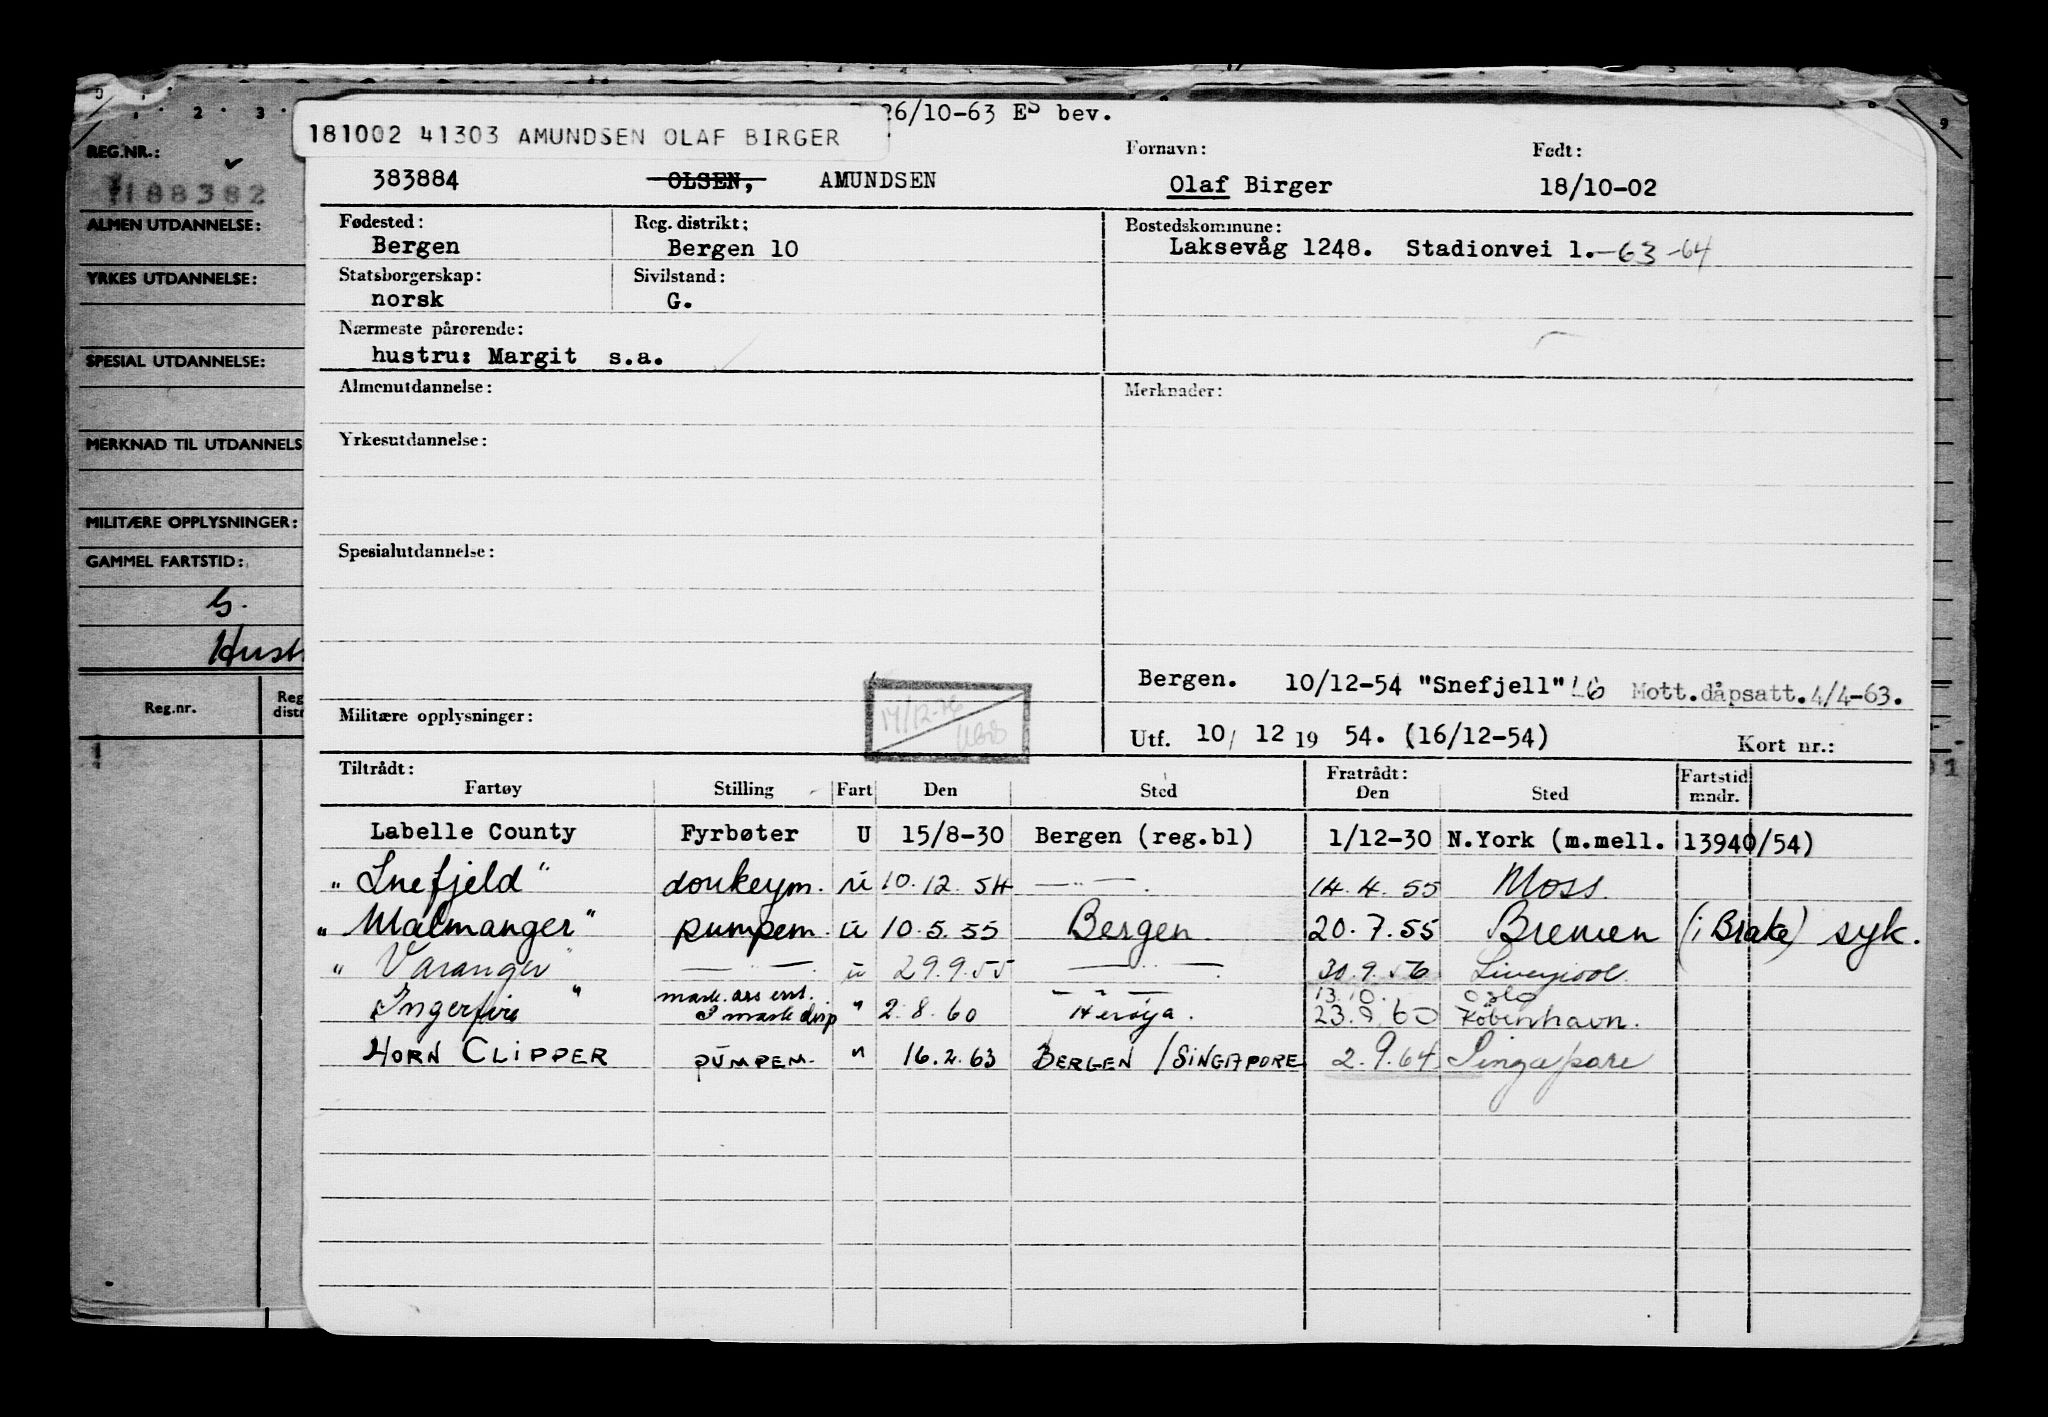 26/10-63 ES bev.
181002 41303 AMUNDSEN OLAF BIRGER
REG.NR.:
188382
ALMEN UTDANNELSE:
YRKES UTDANNELSE:
SPESIAL UTDANNELSE:
MERKNAD TIL UTDANNELS
MILITÆRE OPPLYSNINGER:
GAMMEL FARTSTID:
G.
Hust
Reg.nr. Reg distr
Fornavn: Født:
383884 OLSEN, AMUNDSEN Olaf Birger 18/10-02
Fødested: Reg. distrikt: Bostedskommune:
Bergen Bergen 10 Laksevåg 1248. Stadionvei 1.-63-64
Statsborgerskap: Sivilstand:
norsk G.
Nærmeste pårørende:
hustru: Margit s.a.
Almenutdannelse: Merknader:
Yrkesutdannelse:
Spesialutdannelse:
Bergen. 10/12-54 "Snefjell" L6 Mott.dåpsatt.4/4-63.
Militære opplysninger:
Utf. 10/ 12 19 54. (16/12-54) Kort nr.:
Tiltrådt: Fratrådt: Fartstid
Fartøy Stilling Fart Den Sted Den Sted mndr.
Labelle County Fyrbøter U 15/8-30 Bergen (reg.bl) 1/12-30 N.York (m.mell. 13940/54)
"Snefjeld" donkeym. u 10.12.54 —"— 14.4.55 Moss.
"Malmanger" pumpem. u 10.5.55 Bergen. 20.7.55 Bremen (i Brake) syk.
"Varanger" —"— u 29.9.55 —"— 30.9.56 Liverpool
mask.ass —"— 13.10. Oslo
Ingerfire " I mask disp " 2.8.60 Herøya. 23.9.60 København.
HORN CLIPPER PUMPEM. " 16.2.63 BERGEN / SINGAPORE 2.9.64 Singapore